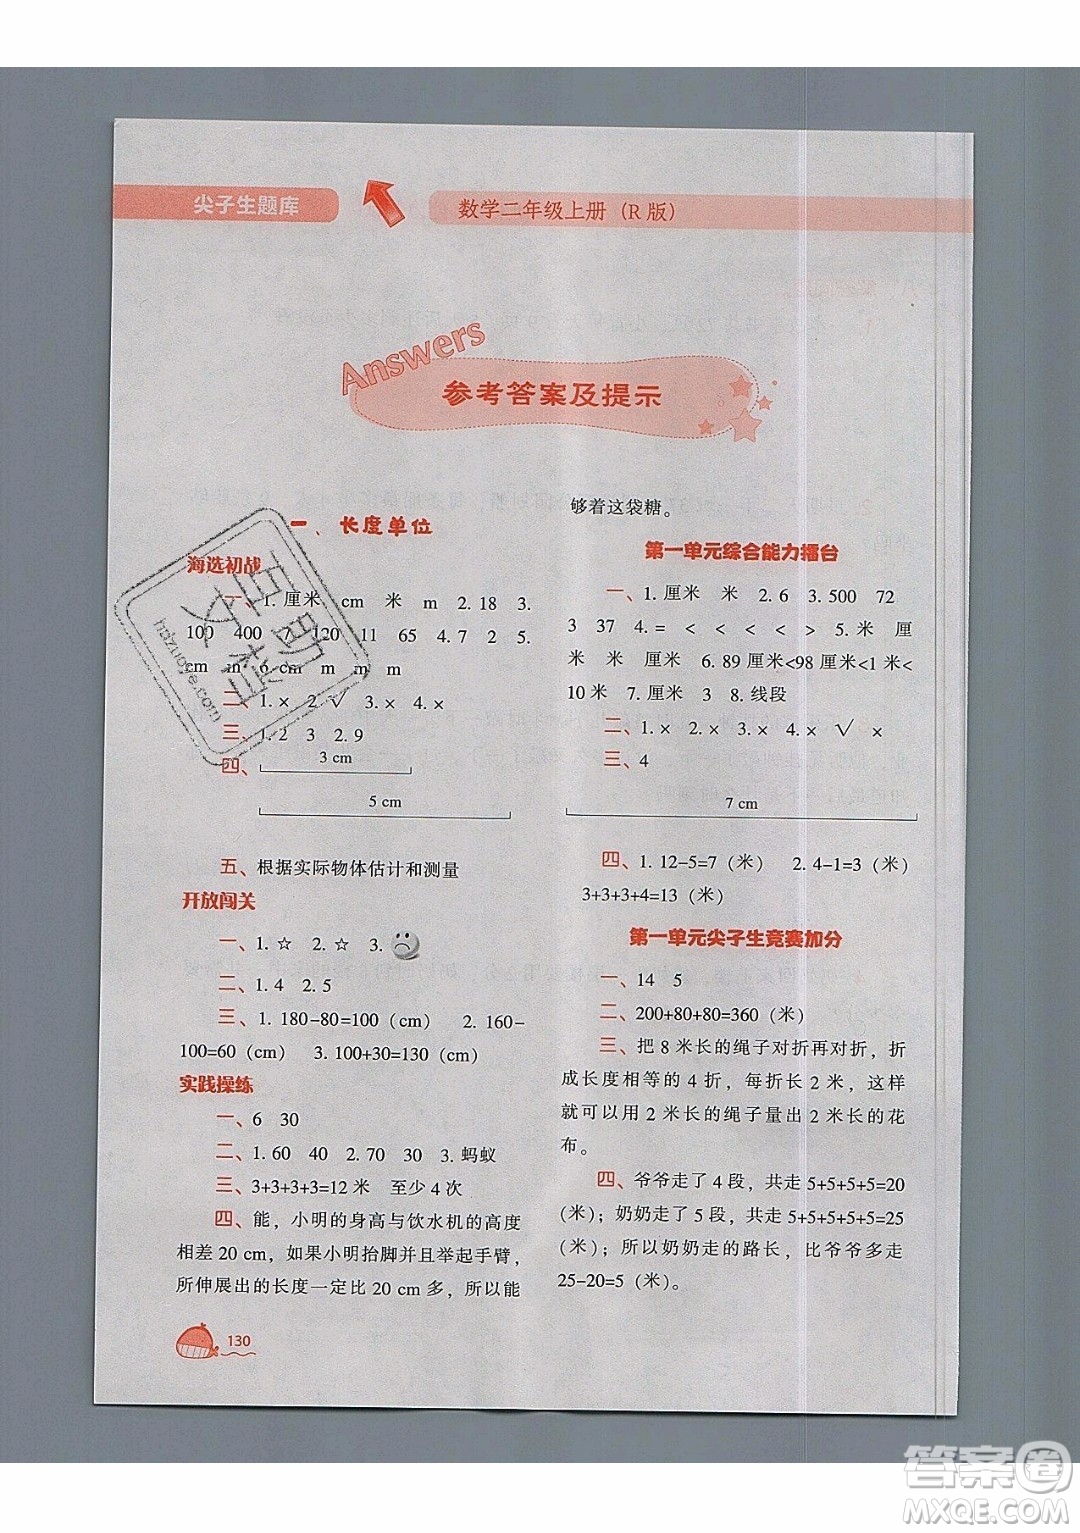 尖子生题库
数学二年级上册（R版）
Answers
参考答案及提示
一、长度单位
海选初战
一、1. 厘米 cm 米 m 2. 18 3.
100 400 7 120 11 65 4. 7 2 5.
cm m 6. cm m m m
二、1. × 2. √ 3. × 4. ×
三、1. 2 3 2. 9
四、
3 cm
5 cm
五、根据实际物体估计和测量
开放闯关
一、1. ☆ 2. ☆ 3.
二、1. 4 2. 5
三、1. 180-80=100（cm） 2. 160-
100=60（cm） 3. 100+30=130（cm）
实践操练
一、6 30
二、1. 60 40 2. 70 30 3. 蚂蚁
三、3+3+3+3=12 米 至少 4 次
四、能，小明的身高与饮水机的高度
相差 20 cm，如果小明抬脚并且举起手臂，
所伸展出的长度一定比 20 cm 多，所以能
够着这袋糖。
第一单元综合能力擂台
一、1. 厘米 米 2. 6 3. 500 72
3 37 4. = < < < < < 5. 米 厘
米 米 厘米 6. 89 厘米<98 厘米<1 米<
10 米 7. 厘米 3 8. 线段
二、1. × 2. × 3. × 4. × √ ×
三、4
7 cm
四、1. 12-5=7（米） 2. 4-1=3（米）
3+3+3+4=13（米）
第一单元尖子生竞赛加分
一、14 5
二、200+80+80=360（米）
三、把 8 米长的绳子对折再对折，折
成长度相等的 4 折，每折长 2 米，这样
就可以用 2 米长的绳子量出 2 米长的花
布。
四、爷爷走了 4 段，共走 5+5+5+5=20
（米）；奶奶走了 5 段，共走 5+5+5+5+5=25
（米）；所以奶奶走的路长，比爷爷多走
25-20=5（米）。
130
答案圈
MXQE.COM